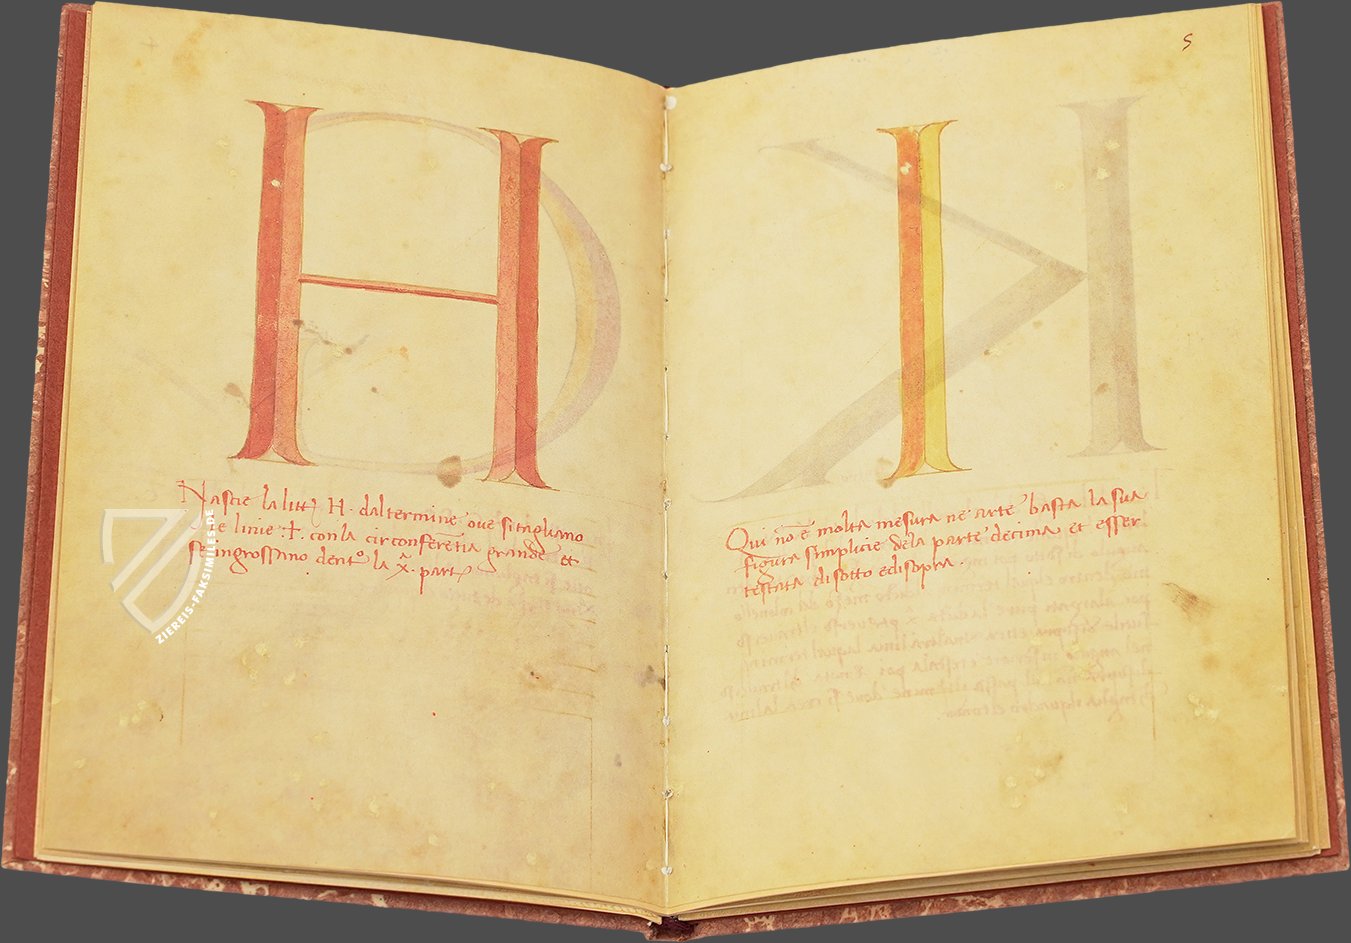 H
Nascie la litt H. dal termine oue si tagliano
le linie .┼. con la circonferētia grande et
si ingrossano dent.º la x̃. part
ZIEREIS-FAKSIMILES.DE
5
I
Qui nō e molta mesura ne arte basta la sua
figura simplicie dela parte decima et esser
testata di sotto e di sopra.